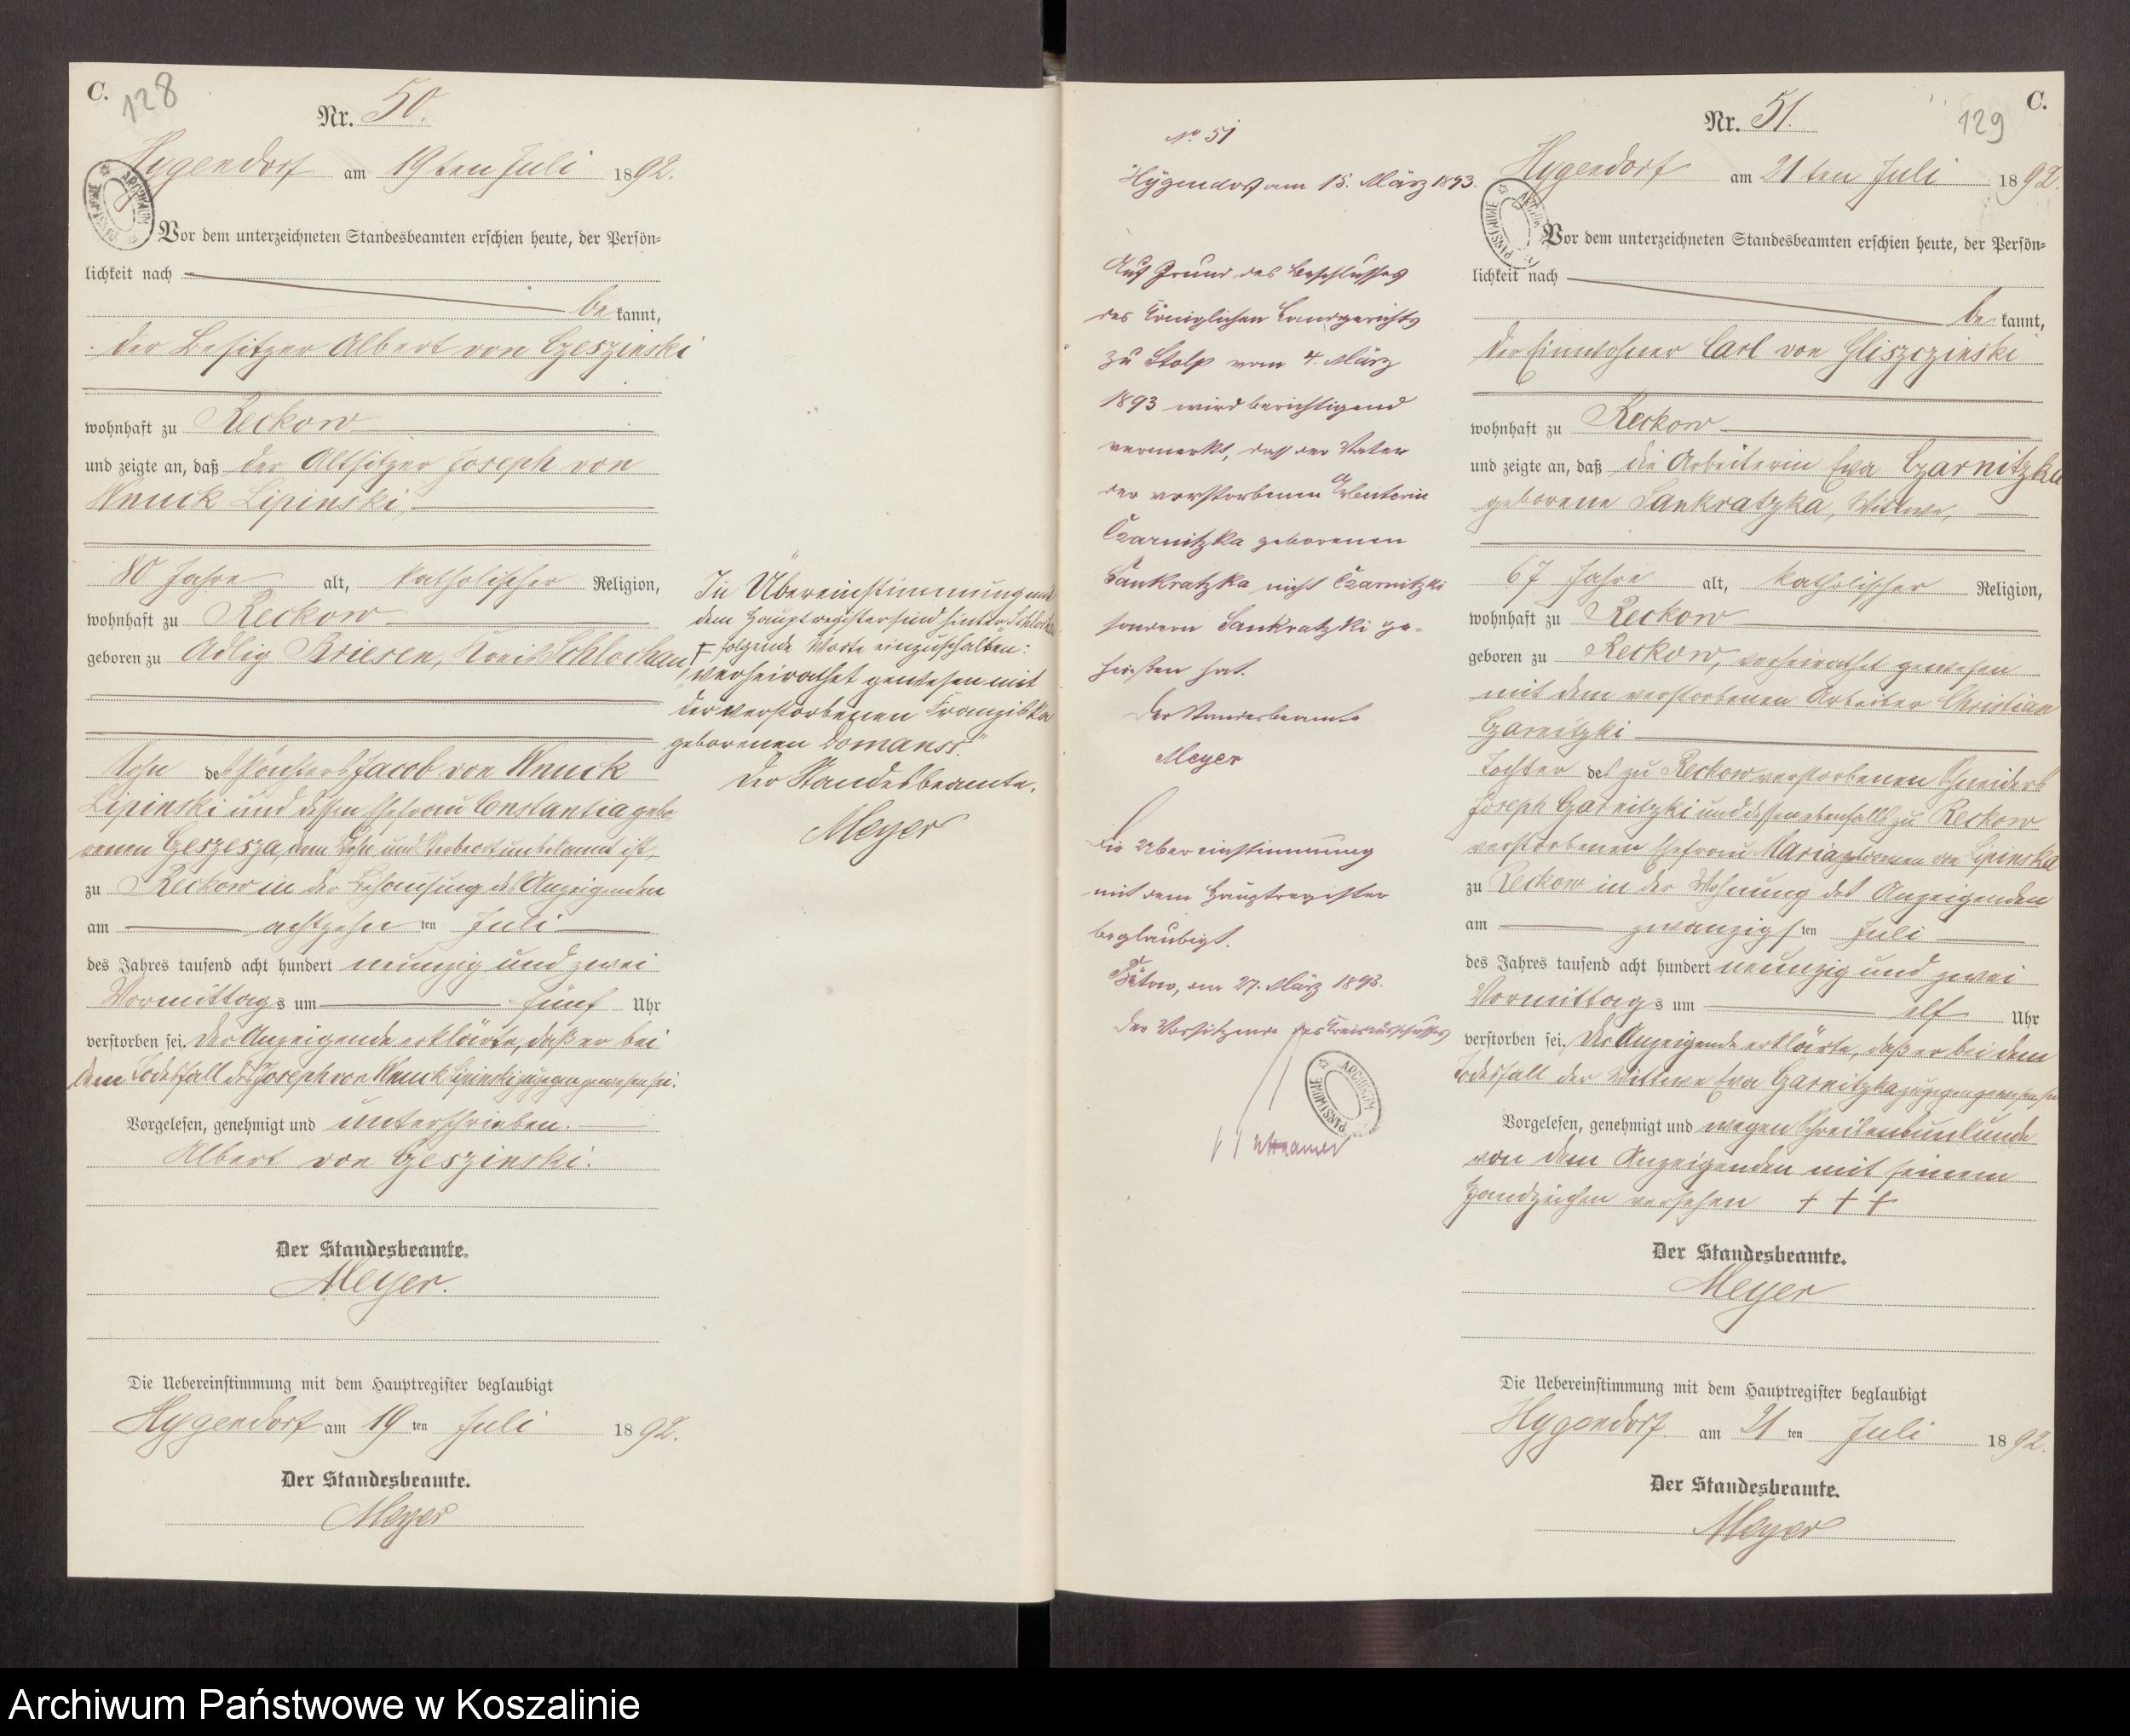 C.
128
Nr. 50.
Hygendorf am 19ten Juli 1892.
Vor dem unterzeichneten Standesbeamten erschien heute, der Persön-
lichkeit nach
be kannt,
der Besitzer Albert von Czeszinski
wohnhaft zu Reckow
und zeigte an, daß der Altsitzer Joseph von
Wnuck Lipinski,
80 Jahre alt, katholischer Religion,
wohnhaft zu Reckow
geboren zu Adlig Briesen, Kreis Schlochau,
Sohn des Jacob von Wnuck
Lipinski und dessen Ehefrau Constantia gebo-
renen Czeszesza, unbekannt ist,
zu Reckow in der Behausung des Anzeigenden
am achtzehn ten Juli
des Jahres tausend acht hundert neunzig und zwei
Vormittags um fünf Uhr
verstorben sei. Der Anzeigende erklärte, daß er bei
dem Todesfall des Joseph von Wnuck Lipinski zugegen gewesen sei.
Vorgelesen, genehmigt und unterschrieben.
Albert von Czeszinski.
Der Standesbeamte.
Meyer.
Die Uebereinstimmung mit dem Hauptregister beglaubigt
Hygendorf am 19 ten Juli 1892.
Der Standesbeamte.
Meyer
In Übereinstimmung mit
dem Hauptregister sind hinter „Schlochau"
folgende Worte einzuschalten:
„verheirathet gewesen mit
der verstorbenen Franziska
geborenen Domanss."
Der Standesbeamte.
Meyer
No 51
Hygendorf am 15. März 1893.
Auf Grund des Beschlusses
des Königlichen Landgerichts
zu Stolp vom 4. März
1893 wird berichtigend
vermerkt, daß der Vater
der verstorbenen Arbeiterin
Czarnitzka geborenen
Sankratzka nicht Czarnitzki
sondern Sankratzki ge-
heißen hat.
Der Standesbeamte
Meyer
Die Übereinstimmung
mit dem Hauptregister
beglaubigt.
Bütow, am 27. März 1893.
Der Vorsitzende des Kreisausschusses
C.
129
Nr. 51.
Hygendorf am 21ten Juli 1892.
Vor dem unterzeichneten Standesbeamten erschien heute, der Persön-
lichkeit nach
be kannt,
der Einwohner Carl von Gliszczinski
wohnhaft zu Reckow
und zeigte an, daß die Arbeiterin Eva Czarnitzka
geborene Sankratzka, Wittwe,
67 Jahre alt, katholischer Religion,
wohnhaft zu Reckow
geboren zu Reckow, verheirathet gewesen
mit dem verstorbenen Arbeiter Christian
Czarnitzki
Tochter des zu Reckow verstorbenen Schneiders
Joseph Czarnitzki und dessen ebenfalls zu Reckow
verstorbenen Ehefrau Maria geborenen von Lipinska
zu Reckow in der Wohnung des Anzeigenden
am zwanzigs ten Juli
des Jahres tausend acht hundert neunzig und zwei
Vormittags um elf Uhr
verstorben sei. Der Anzeigende erklärte, daß er bei dem
Todesfall der Wittwe Eva Czarnitzka zugegen gewesen sei
Vorgelesen, genehmigt und wegen Schreibensunkunde
von dem Anzeigenden mit seinem
Handzeichen versehen + + +
Der Standesbeamte.
Meyer
Die Uebereinstimmung mit dem Hauptregister beglaubigt
Hygendorf am 21 ten Juli 1892.
Der Standesbeamte.
Meyer
Archiwum Państwowe w Koszalinie